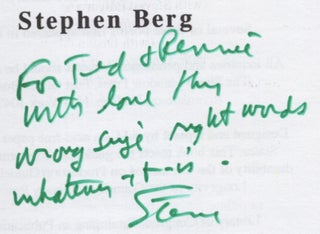 Stephen Berg
For Ted & Rennie
with love this
wrong says right words
whatever it is.
Steve